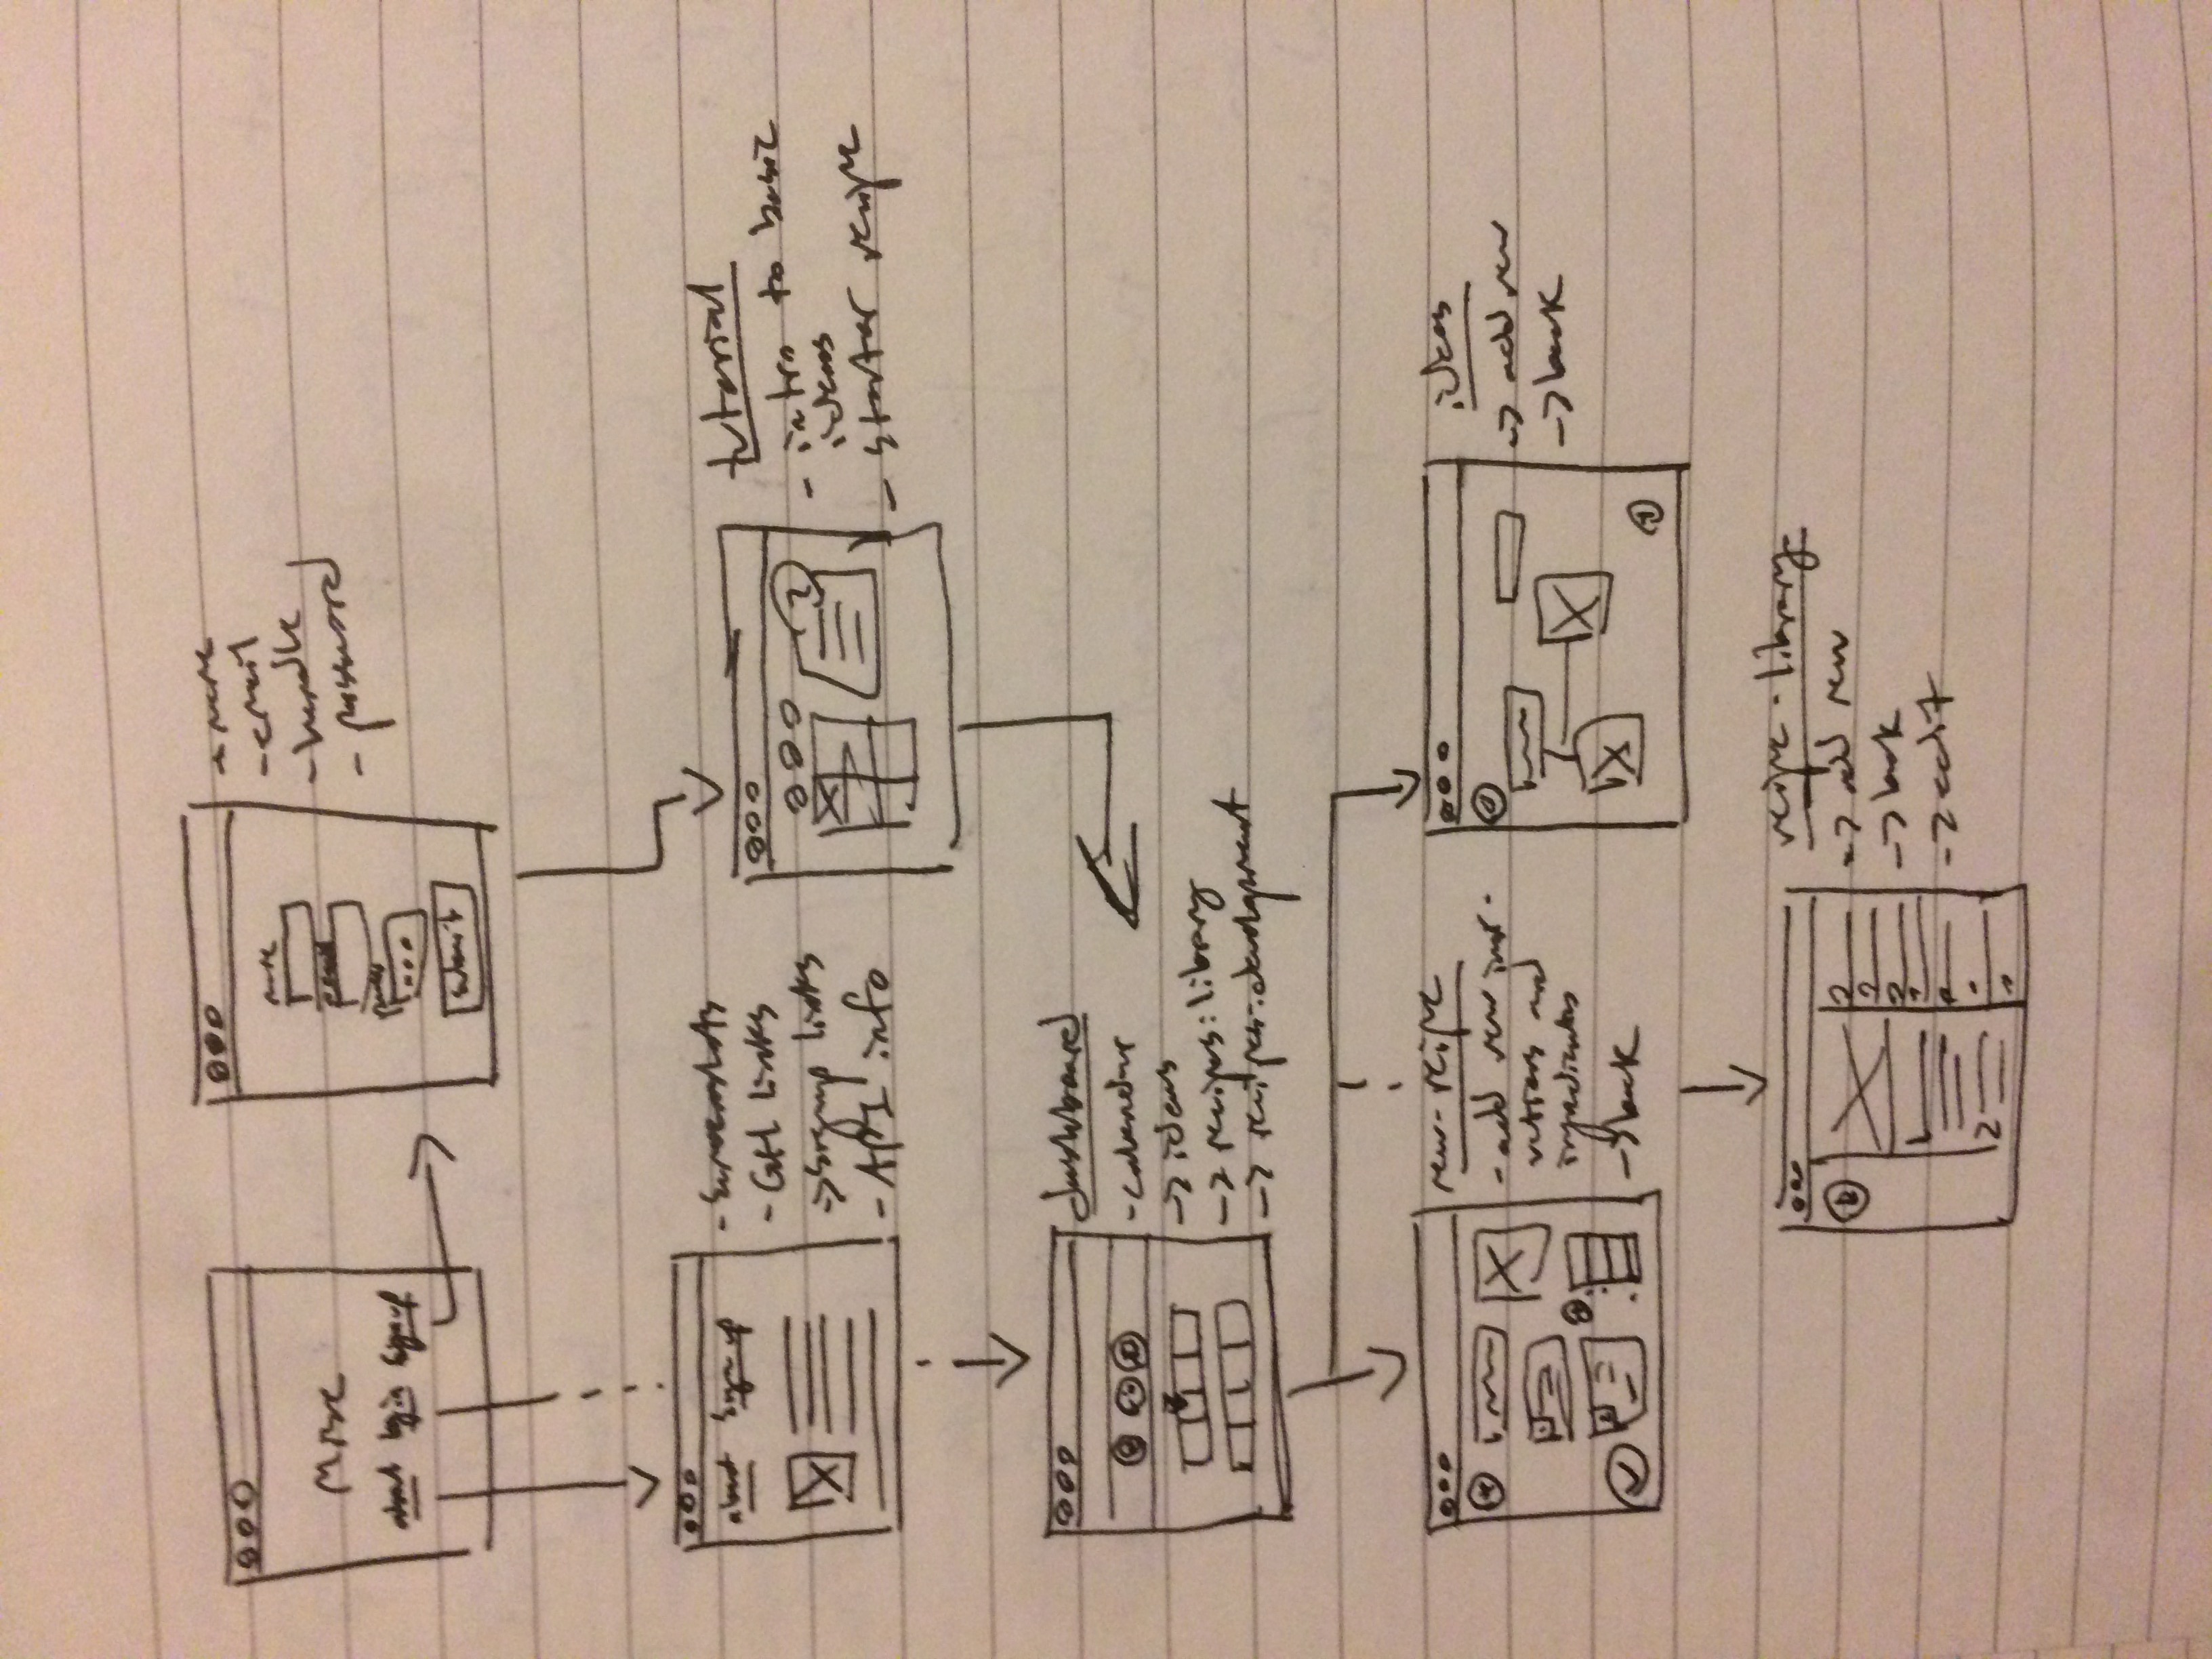 Mise
about login signup
name
email
pass
submit
- name
- email
- handle
- password
about sign up
- Screenshots
- GH links
-> Signup links
- API info
tutorial
- intro to basic
ideas
- starter recipe
dashboard
- calendar
-> ideas
-> recipes:library
-> recipes:development
new-recipe
- add new inst-
ructions and
ingredients
-> back
ideas
-> add new
-> back
recipe-library
2
-> add new
-> back
-> edit